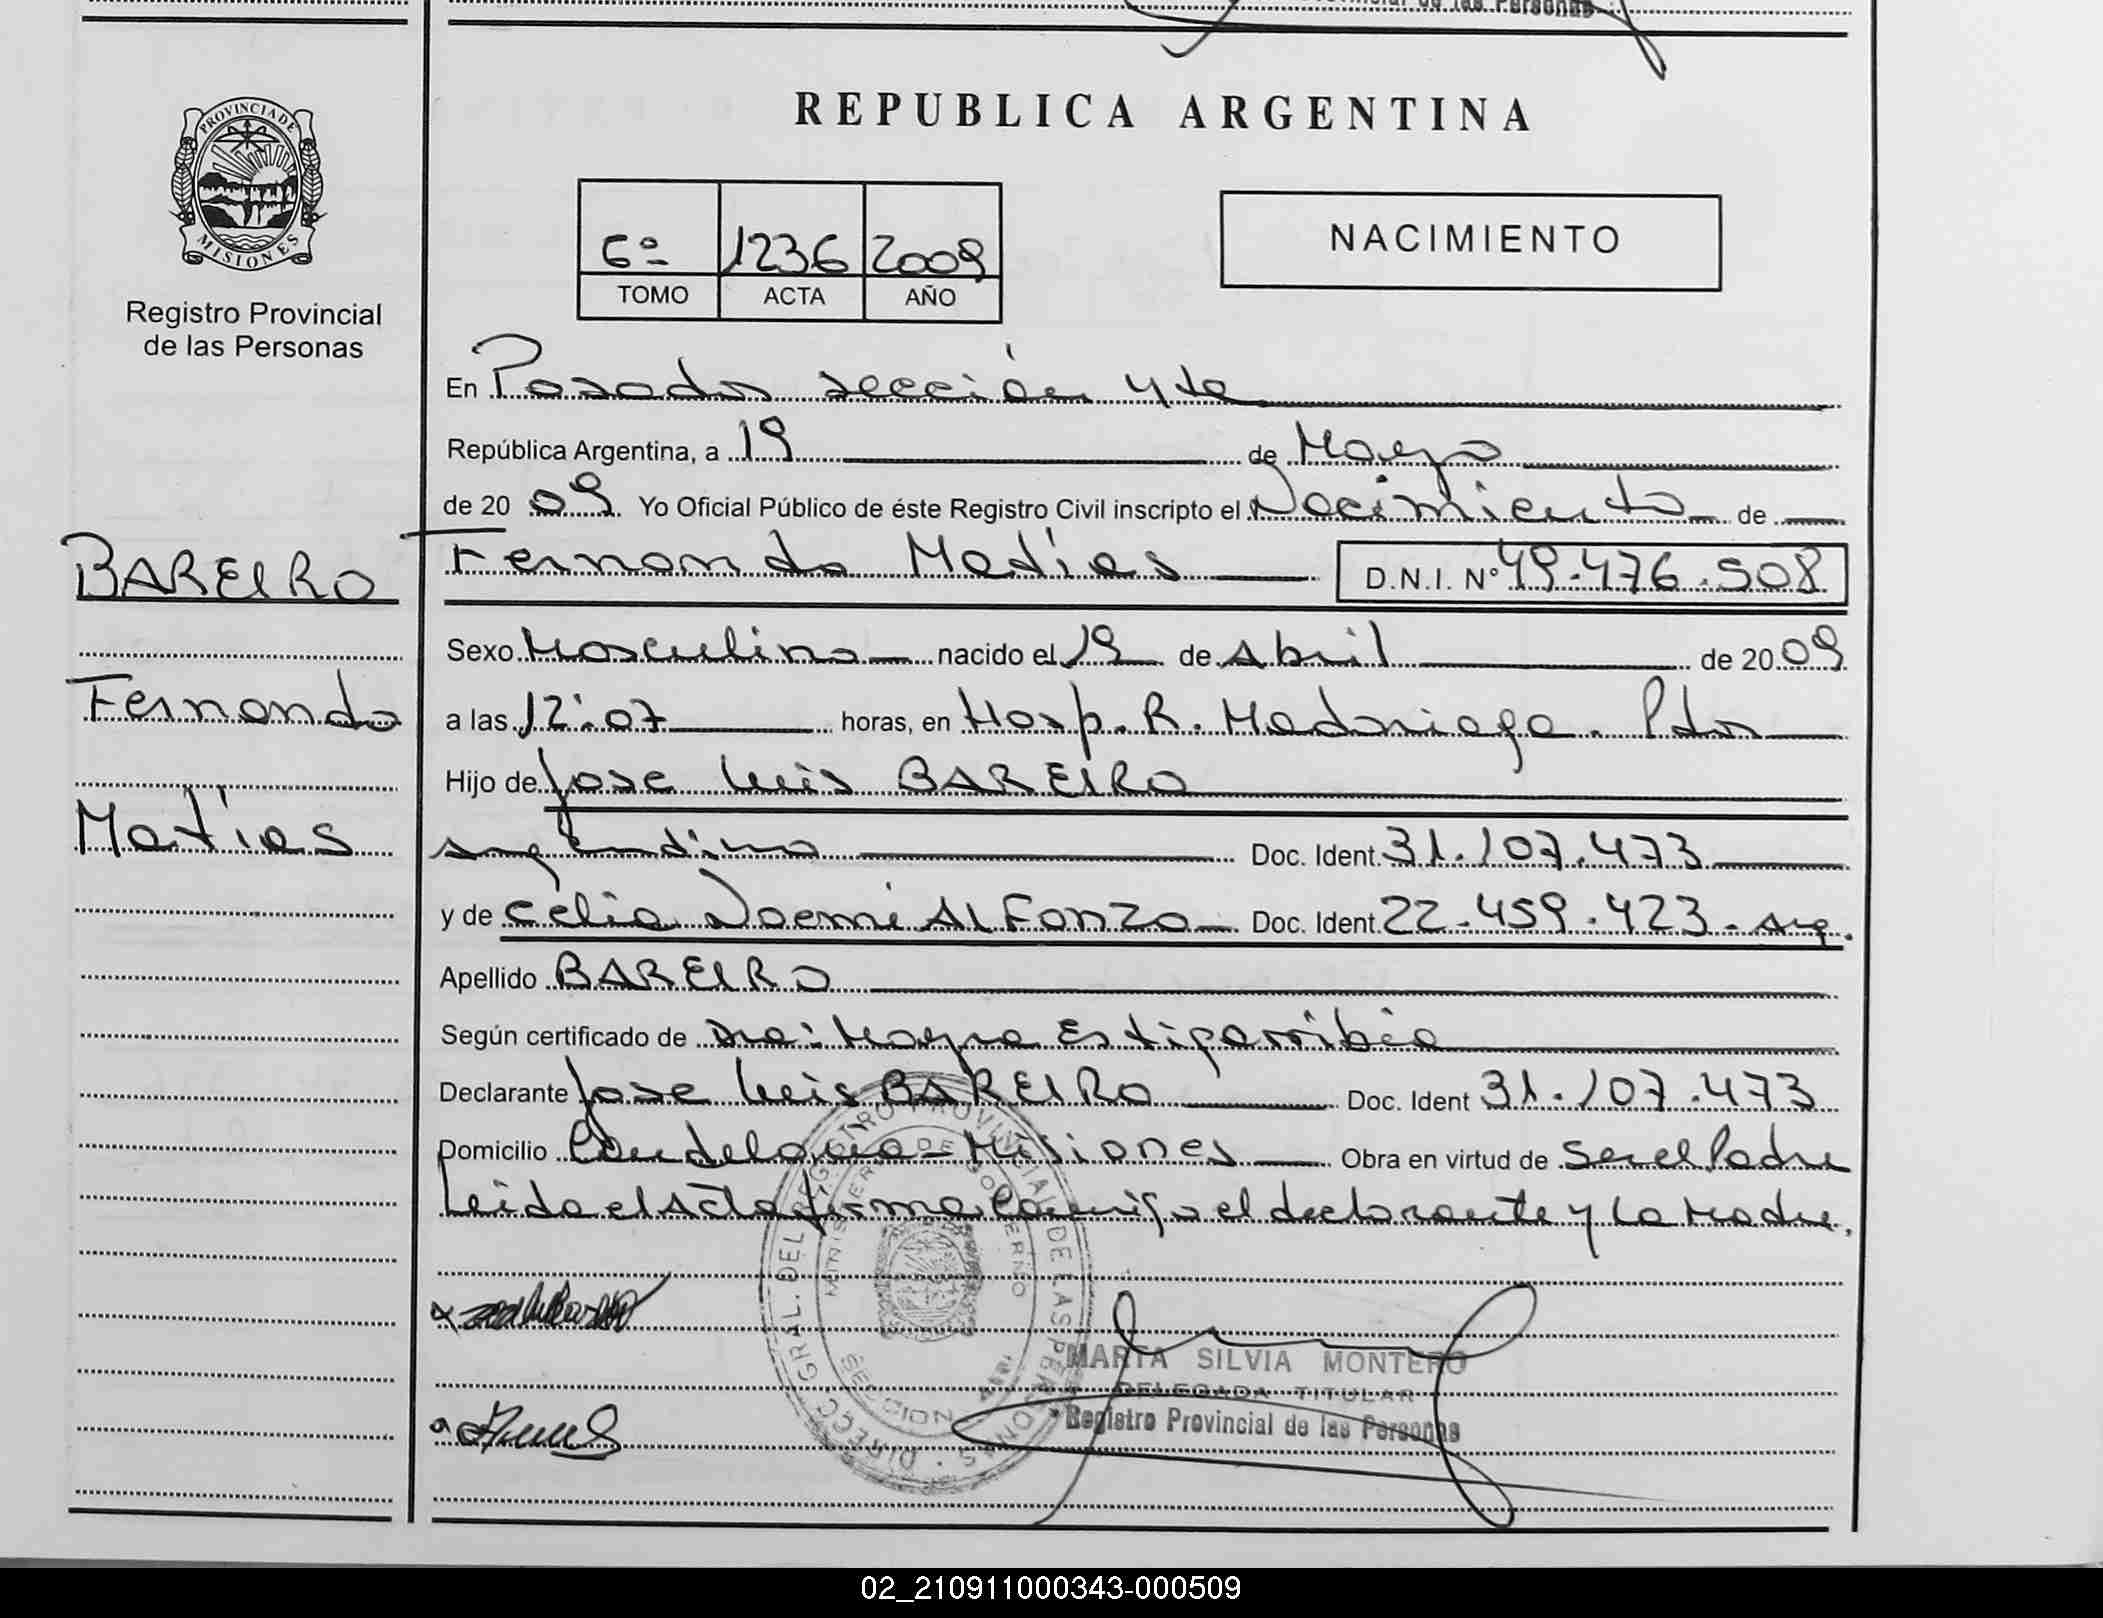 de las Personas
PROVINCIA DE
MISIONES
Registro Provincial
de las Personas
REPUBLICA ARGENTINA
6º 1236 2009
TOMO ACTA AÑO
NACIMIENTO
En Posadas sección 4ta
República Argentina, a 19 de Mayo
de 2009 Yo Oficial Público de éste Registro Civil inscripto el Nacimiento de
BAREIRO
Fernando Matías D.N.I. Nº 49.476.508
Sexo Masculino nacido el 19 de Abril de 2009
Fernando
a las 12:07 horas, en Hosp. R. Madariaga. Pdas
Hijo de Jose Luis BAREIRO
Matías
argentino Doc. Ident. 31.107.473
y de Celia Noemi ALFONZO Doc. Ident. 22.459.423. arg.
Apellido BAREIRO
Según certificado de Dra: Mayra Estigarribia
Declarante Jose Luis BAREIRO Doc. Ident 31.107.473
Domicilio Candelaria - Misiones Obra en virtud de Ser el Padre
Leida el Acta firma Conmigo el declarante y La Madre.
DIRECC. GRAL. DEL REGISTRO PROVINCIAL DE LAS PERSONAS
MINISTERIO DE GOBIERNO
SECCION
MARTA SILVIA MONTERO
DELEGADA TITULAR
Registro Provincial de las Personas
02_210911000343-000509